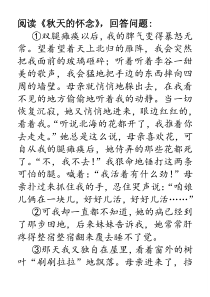 阅读《秋天的怀念》，回答问题：
①双腿瘫痪以后，我的脾气变得暴怒无
常。望着望着天上北归的雁阵，我会突然
把我面前的玻璃砸碎；听着听着李谷一甜
美的歌声，我会猛地把手边的东西摔向四
周的墙壁。母亲就悄悄地躲出去，在我看
不见的地方偷偷地听着我的动静。当一切
恢复沉寂，她又悄悄地进来，眼边红红的，
看着我。“听说北海的花都开了，我推着你
去走走。”她总是这么说，母亲喜欢花，可
自从我的腿瘫痪后，她侍弄的那些花都死
了。“不，我不去！”我狠命地锤打这两条
可怕的腿。喊着：“我活着有什么劲！”母
亲扑过来抓住我的手，忍住哭声说：“咱娘
儿俩在一块儿，好好儿活，好好儿活……”
②可我却一直都不知道，她的病已经到
了那步田地。后来妹妹告诉我，她常常肝
疼得整宿整宿翻来覆去睡不了觉。
③那天我又独自在屋里，看着窗外的树
叶“刷刷拉拉”地飘落。母亲进来了，挡